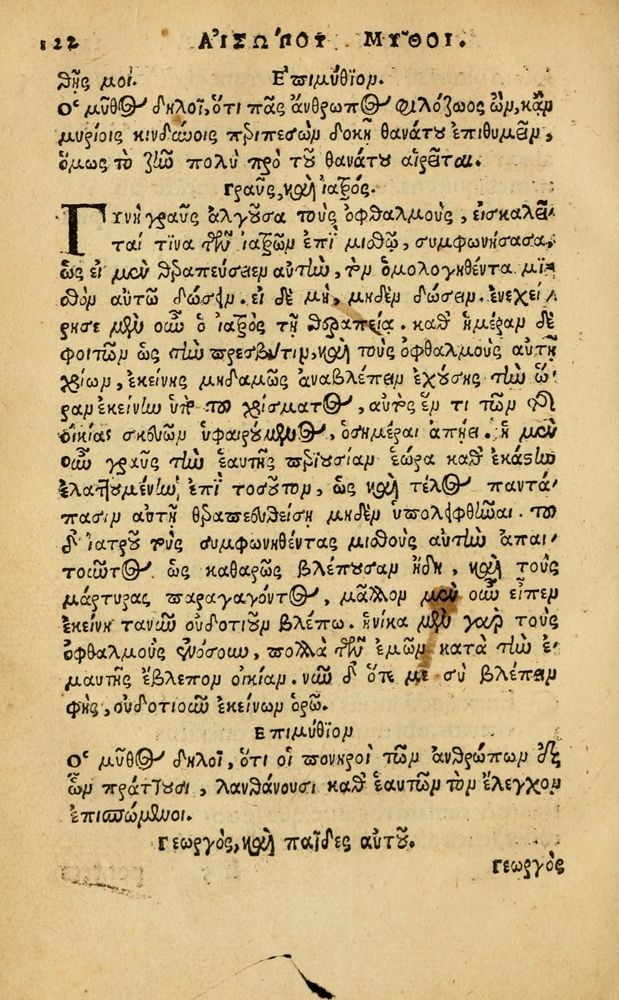 122 ΑἸΣΏΠΟΥ ΜΥ͂ΘΟΙ.
θῇς μοι. Ἐπιμύθιον.
Ὁ μῦθος δηλοῖ, ὅτι πᾶς ἄνθρωπος φιλόζωος ὢν, κἂν
μυρίοις κινδύνοις περιπεσὼν δοκῇ θανάτου ἐπιθυμεῖν,
ὅμως τὸ ζῆν πολὺ πρὸ τοῦ θανάτου αἱρεῖται.
Γραῦς, καὶ ἰατρός.
Γυνὴ γραῦς ἀλγοῦσα τοὺς ὀφθαλμοὺς, εἰσκαλεῖ-
ταί τινα τῶν ἰατρῶν ἐπὶ μισθῷ, συμφωνήσασα,
ὡς εἰ μὲν θεραπεύσειεν αὐτὴν, τὸν ὁμολογηθέντα μι-
σθὸν αὐτῷ δώσειν. εἰ δὲ μὴ, μηδὲν δώσειν. ἐνεχεί-
ρησε μὲν οὖν ὁ ἰατρὸς τῇ θεραπείᾳ. καθ' ἡμέραν δὲ
φοιτῶν ὡς τὴν πρεσβῦτιν, καὶ τοὺς ὀφθαλμοὺς αὐτῇ
χρίων, ἐκείνης μηδαμῶς ἀναβλέπειν ἐχούσης τὴν ὥ-
ραν ἐκείνην ὑπὸ τοῦ χρίσματος, αὐτὸς ἕν τι τῶν τῆς
οἰκίας σκευῶν ὑφαιρούμενος, ὁσημέραι ἀπῄει. ἡ μὲν
οὖν γραῦς τὴν ἑαυτῆς περιουσίαν ἑώρα καθ' ἑκάστην
ἐλαττουμένην ἐπὶ τοσοῦτον, ὡς καὶ τέλος παντά-
πασιν αὐτῇ θεραπευθείσῃ μηδὲν ὑπολειφθῆναι. τοῦ
δ' ἰατροῦ τοὺς συμφωνηθέντας μισθοὺς αὐτὴν ἀπαι-
τοῦντος ὡς καθαρῶς βλέπουσαν ἤδη, καὶ τοὺς
μάρτυρας παραγαγόντος, μᾶλλον μὲν οὖν εἶπεν
ἐκείνη τανῦν οὐδοτιοῦν βλέπω. ἡνίκα μὲν γὰρ τοὺς
ὀφθαλμοὺς ἐνόσουν, πολλὰ τῶν ἐμῶν κατὰ τὴν ἐ-
μαυτῆς ἔβλεπον οἰκίαν. νῦν δ' ὅτε με σὺ βλέπειν
φῂς, οὐδοτιοῦν ἐκείνων ὁρῶ.
Ἐπιμύθιον
Ὁ μῦθος δηλοῖ, ὅτι οἱ πονηροὶ τῶν ἀνθρώπων ἐξ
ὧν πράττουσι, λανθάνουσι καθ' ἑαυτῶν τὸν ἔλεγχον
ἐπισπώμενοι.
Γεωργὸς, καὶ παῖδες αὐτοῦ.
Γεωργὸς